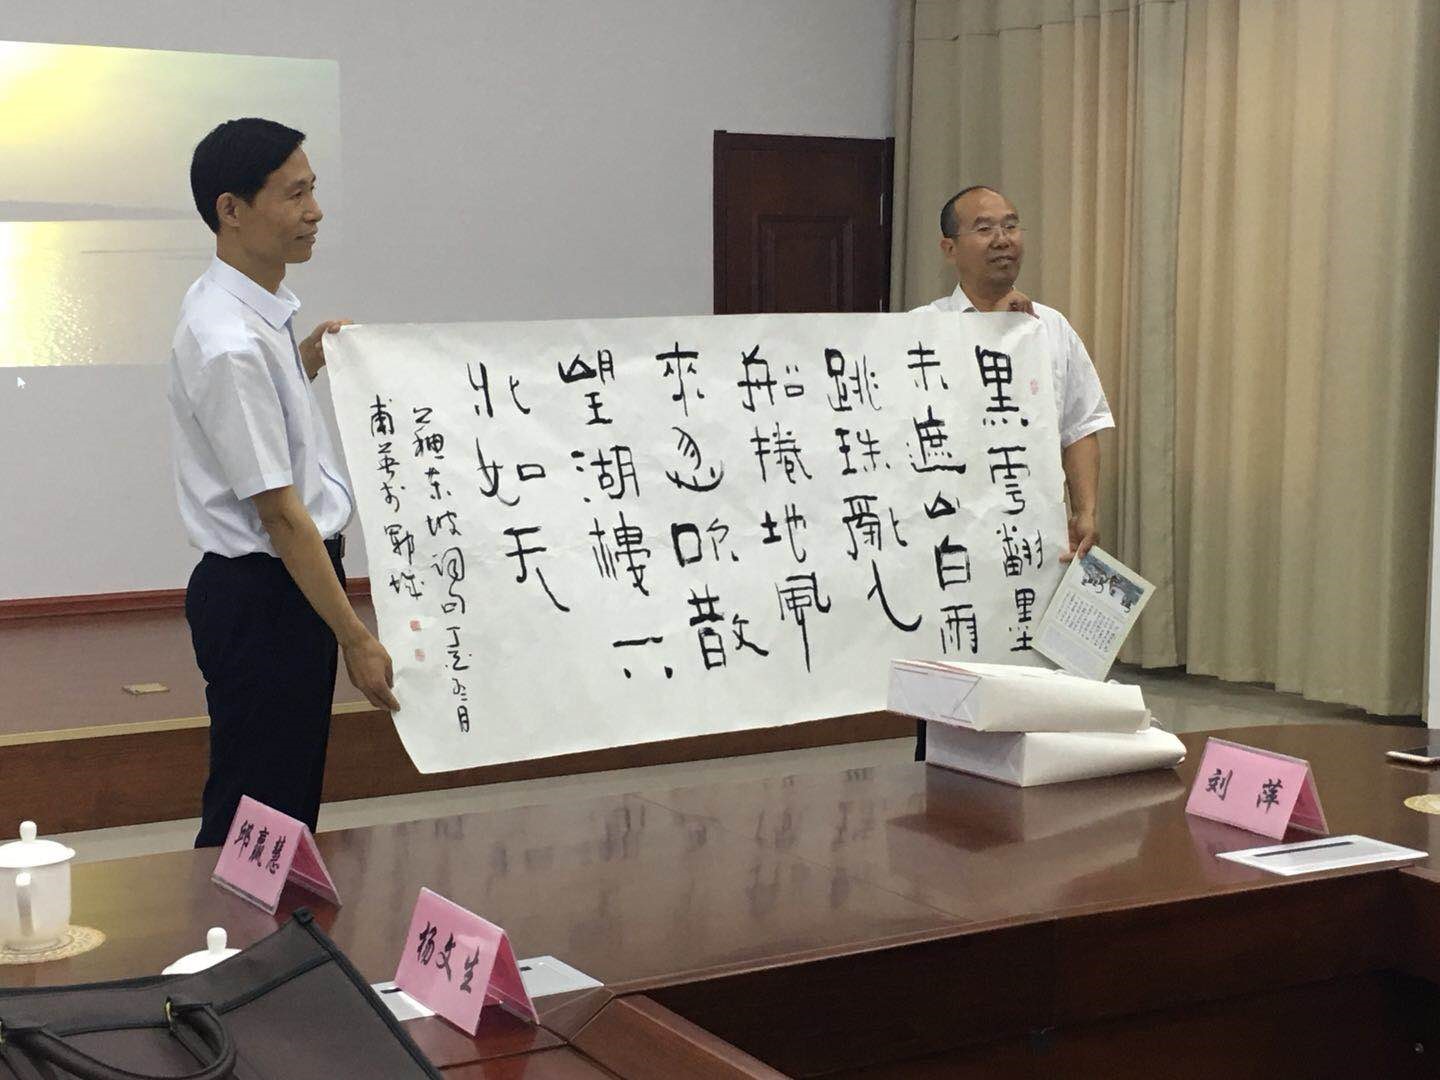 黑雲翻墨
未遮山白雨
跳珠亂入
船捲地風
來忽吹散
望湖樓下
水如天
蘇東坡詞句丁酉月
刘萍
邱赢慧
杨文生